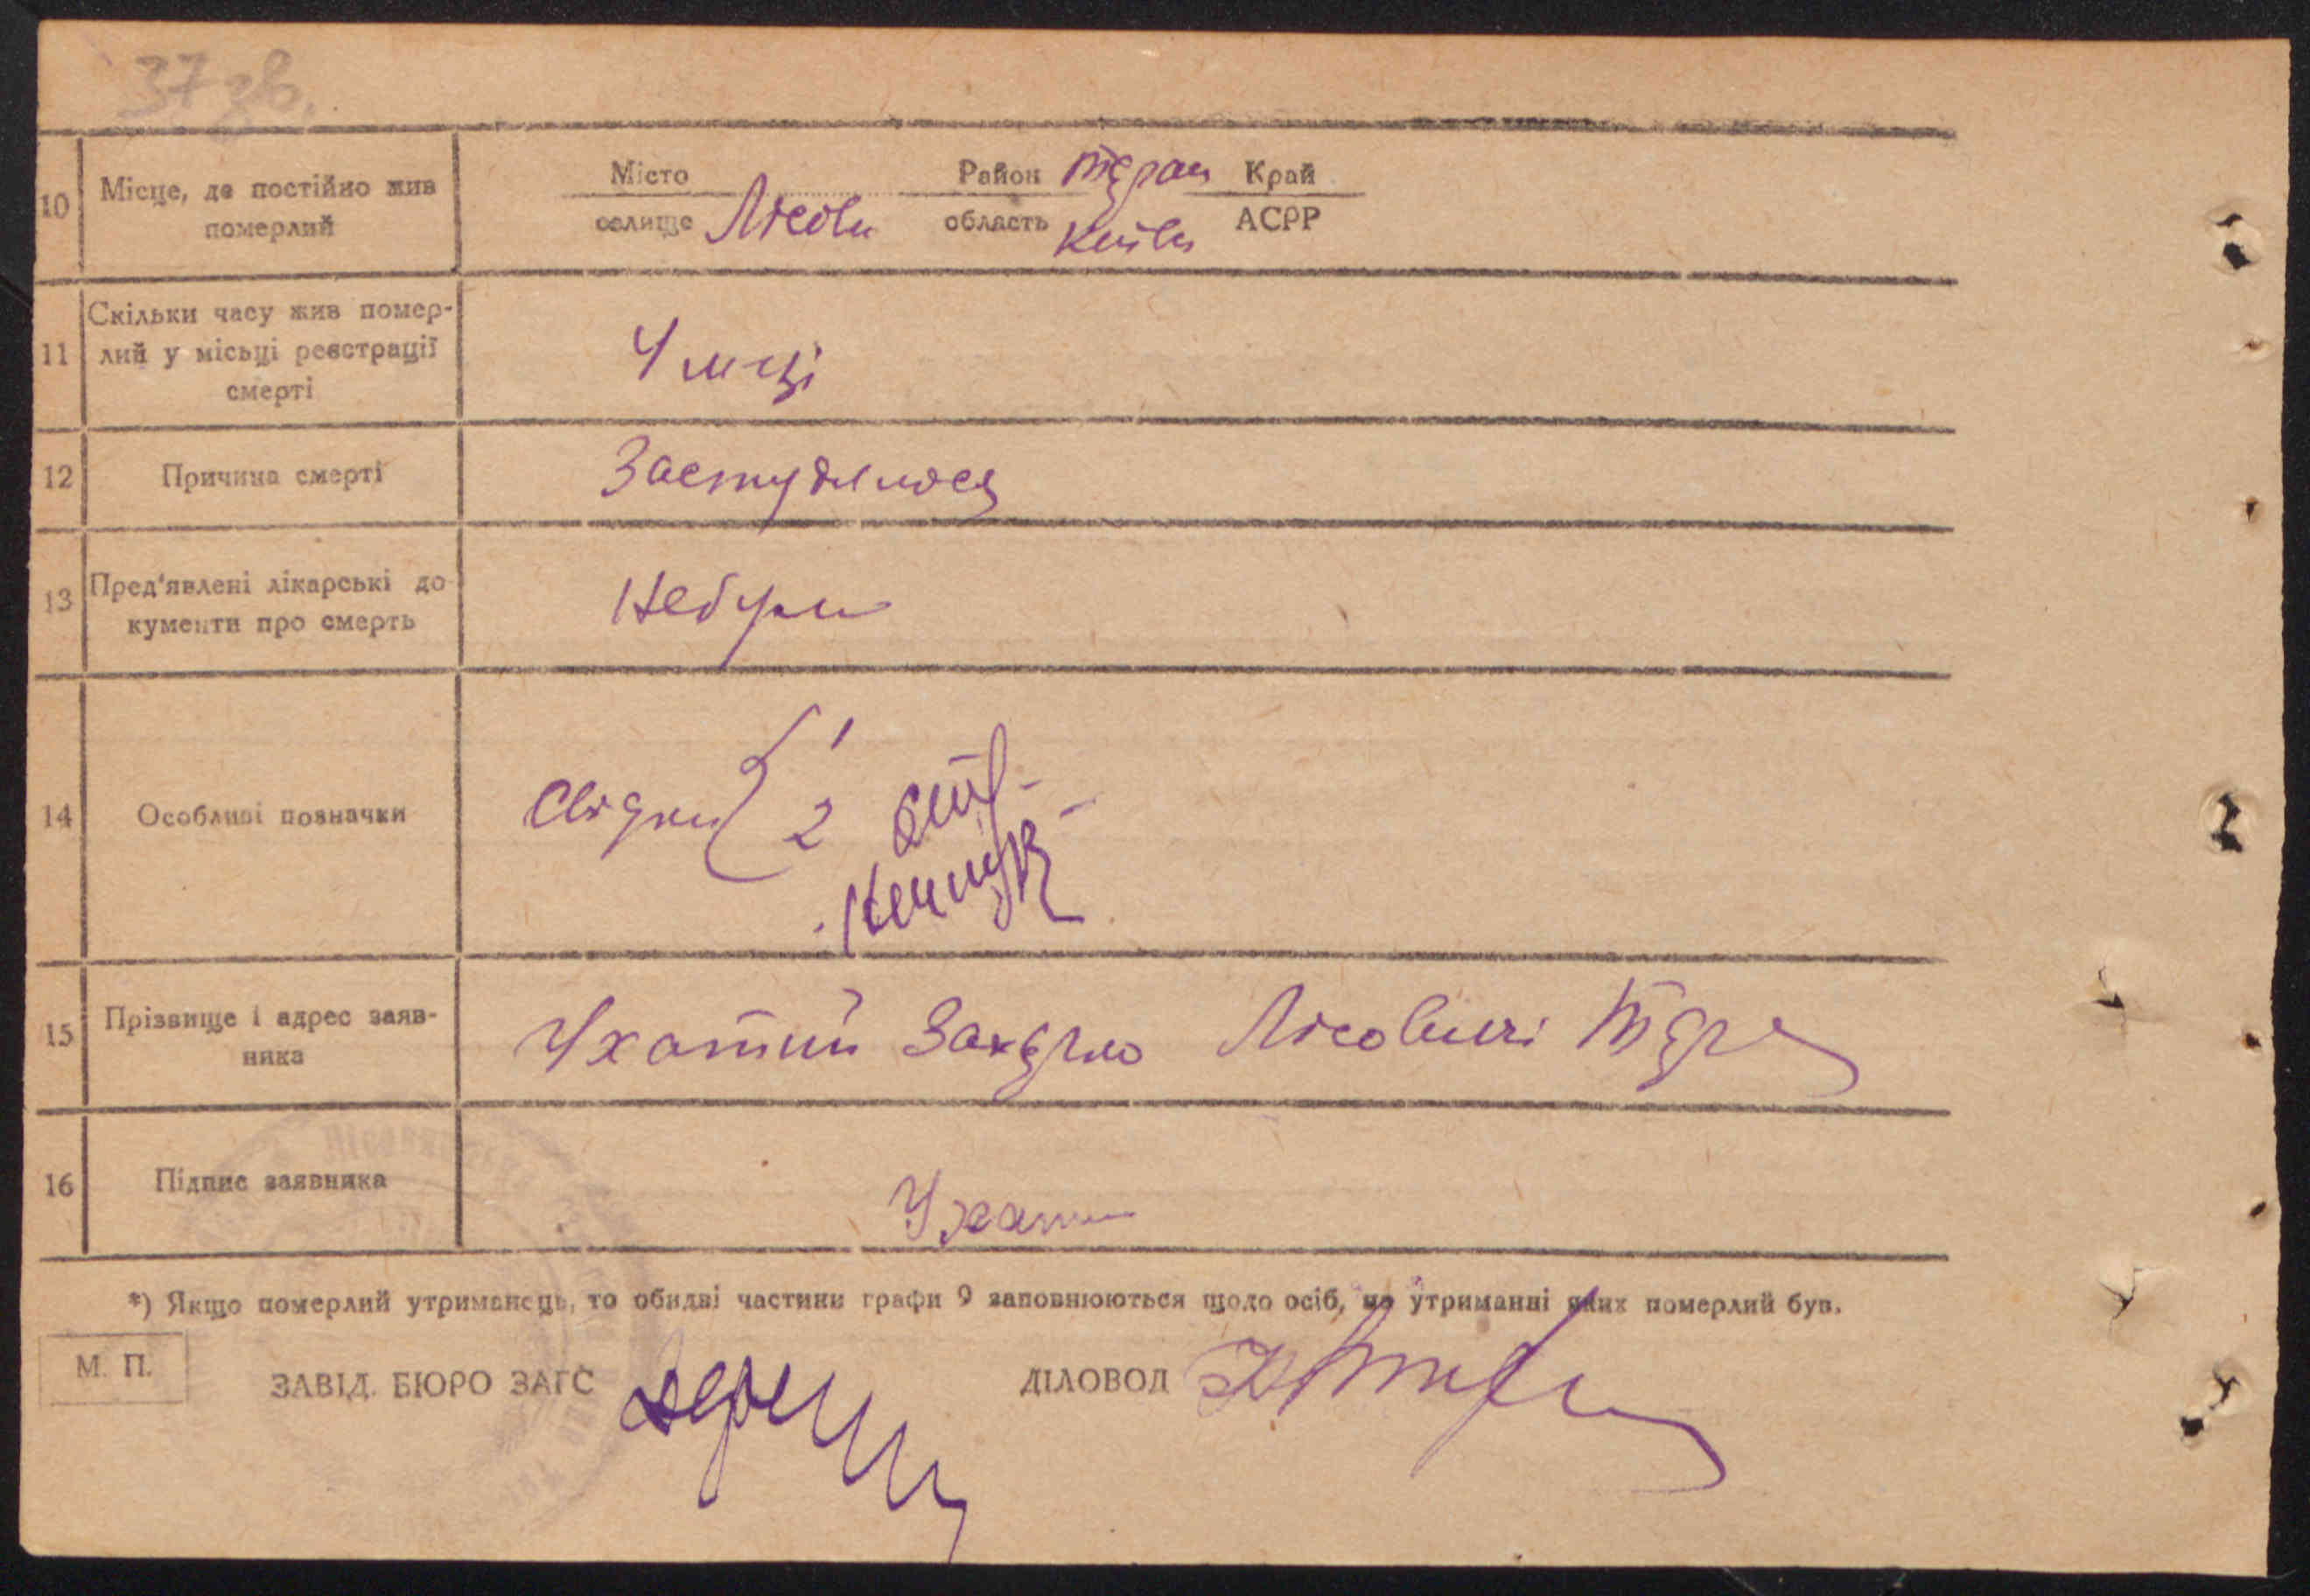 37 зв.
10 Місце, де постійно жив померлий
Місто Район Тераш Край
селище Лісови область Київ АСРР
11 Скільки часу жив помер-
лий у місьці реєстрації
смерті
4 м-ці
12 Причина смерті Застудилося
13 Пред'явлені лікарські до
кументи про смерть
Небули
14 Особливі позначки Свідки 1
2
15 Прізвище і адрес заяв-
ника
Ухатий Захарко Лісовичі Тара
16 Підпис заявника Ухати
*) Якщо померлий утриманець, то обидві частини графи 9 заповнюються щодо осіб, на утриманні яких померлий був.
М. П.
ЗАВІД. БЮРО ЗАГС ДІЛОВОД